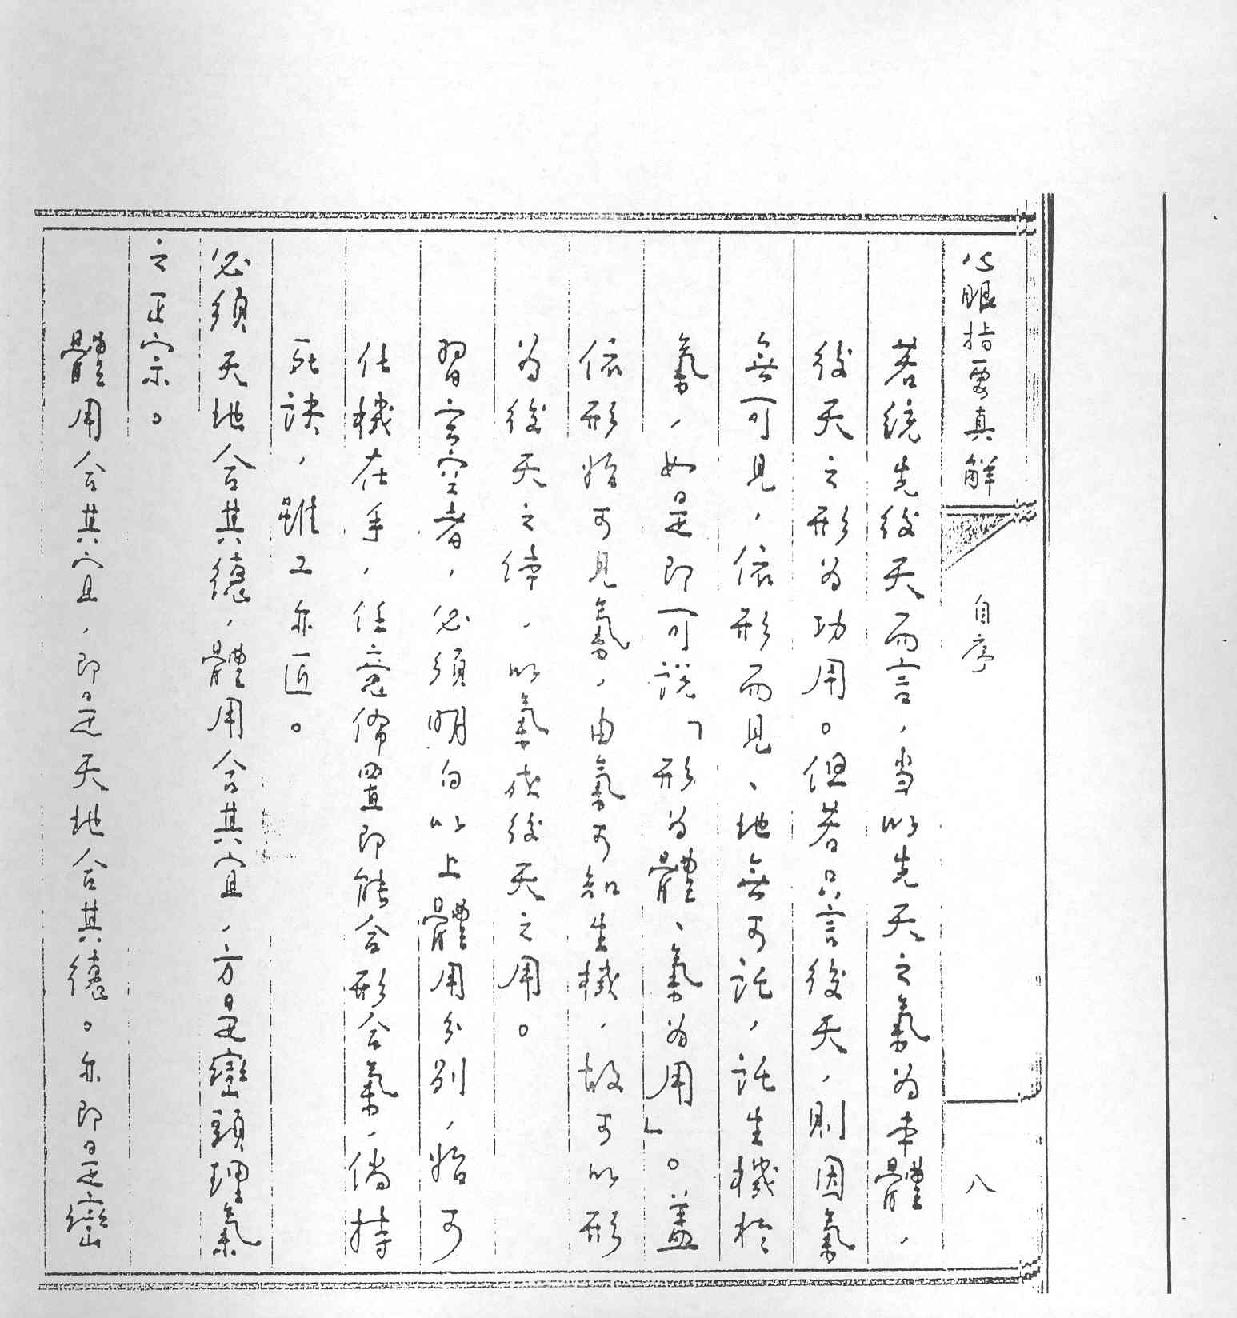 心眼指要真解
自序
八
若統先後天而言，当以先天之氣为本體，
後天之形为功用。但若只言後天，則因氣
無可見，依形而見、地無可託，託生機於
氣，如是即可說「形为體、氣为用」。蓋
依形始可見氣，由氣可知生機，故可以形
为後天之体，以氣成後天之用。
習玄空者，必須明白以上體用分別，始可
化機在手，任意佈置即能合形合氣，倘持
死訣，雖工亦匠。
必須天地合其德，體用合其宜，方是巒頭理氣
之正宗。
體用合其宜，即是天地合其德。亦即是巒